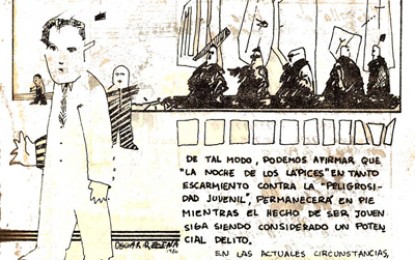 DE TAL MODO, PODEMOS AFIRMAR QUE
"LA NOCHE DE LOS LÁPICES" EN TANTO
ESCARMIENTO CONTRA LA "PELIGROSI-
DAD JUVENIL", PERMANECERÁ EN PIE
MIENTRAS EL HECHO DE SER JOVEN
SIGA SIENDO CONSIDERADO UN POTEN
CIAL DELITO.
EN LAS ACTUALES CIRCUNSTANCIAS,